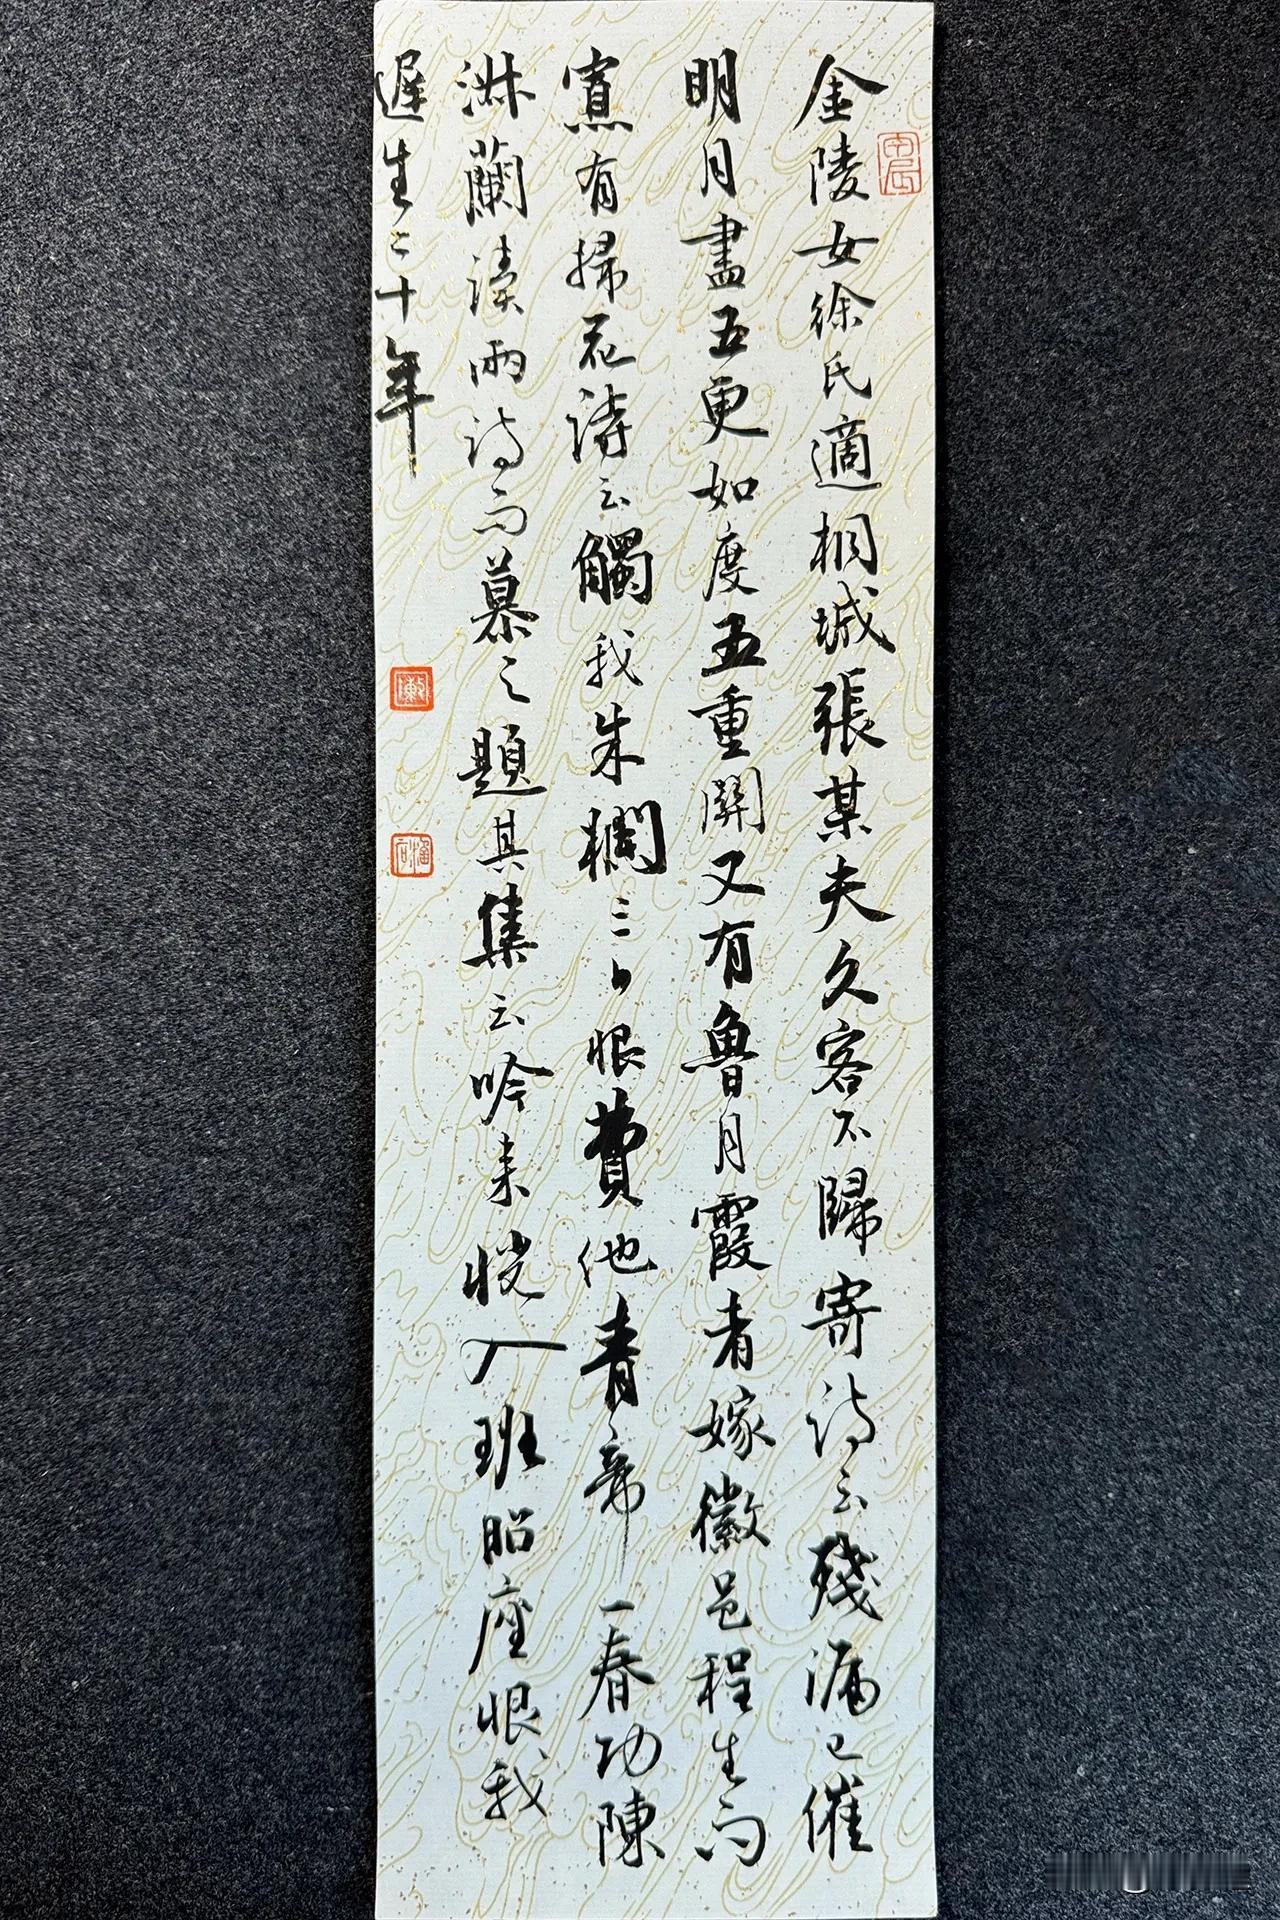 金陵女徐氏適桐城張某夫久客不歸寄詩云殘漏已催
明月盡五更如度五重關又有魯月霞者嫁徽邑程生而
寡有掃花詩云觸我朱欄三日恨費他青帝一春功陳
淑蘭讀兩詩而慕之題其集云吟來恍入班昭座恨我
遲生二十年